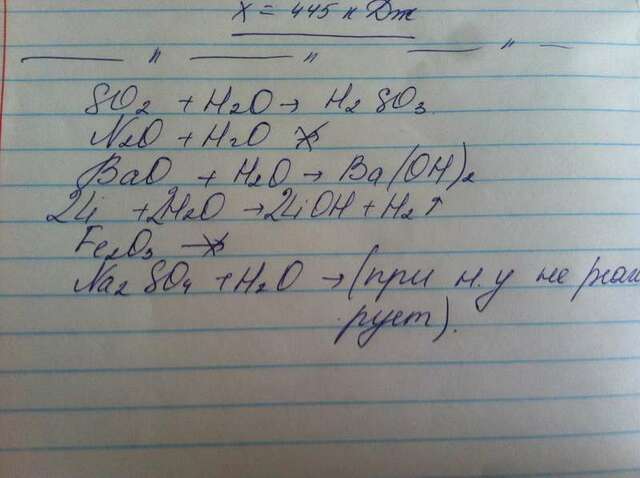 x = 445 кДж
— " — " — " —
SO2 + H2O → H2SO3
N2O + H2O ↛
BaO + H2O → Ba(OH)2
2Li + 2H2O → 2LiOH + H2↑
Fe2O3 ↛
Na2SO4 + H2O → (при н.у не реаги
рует).